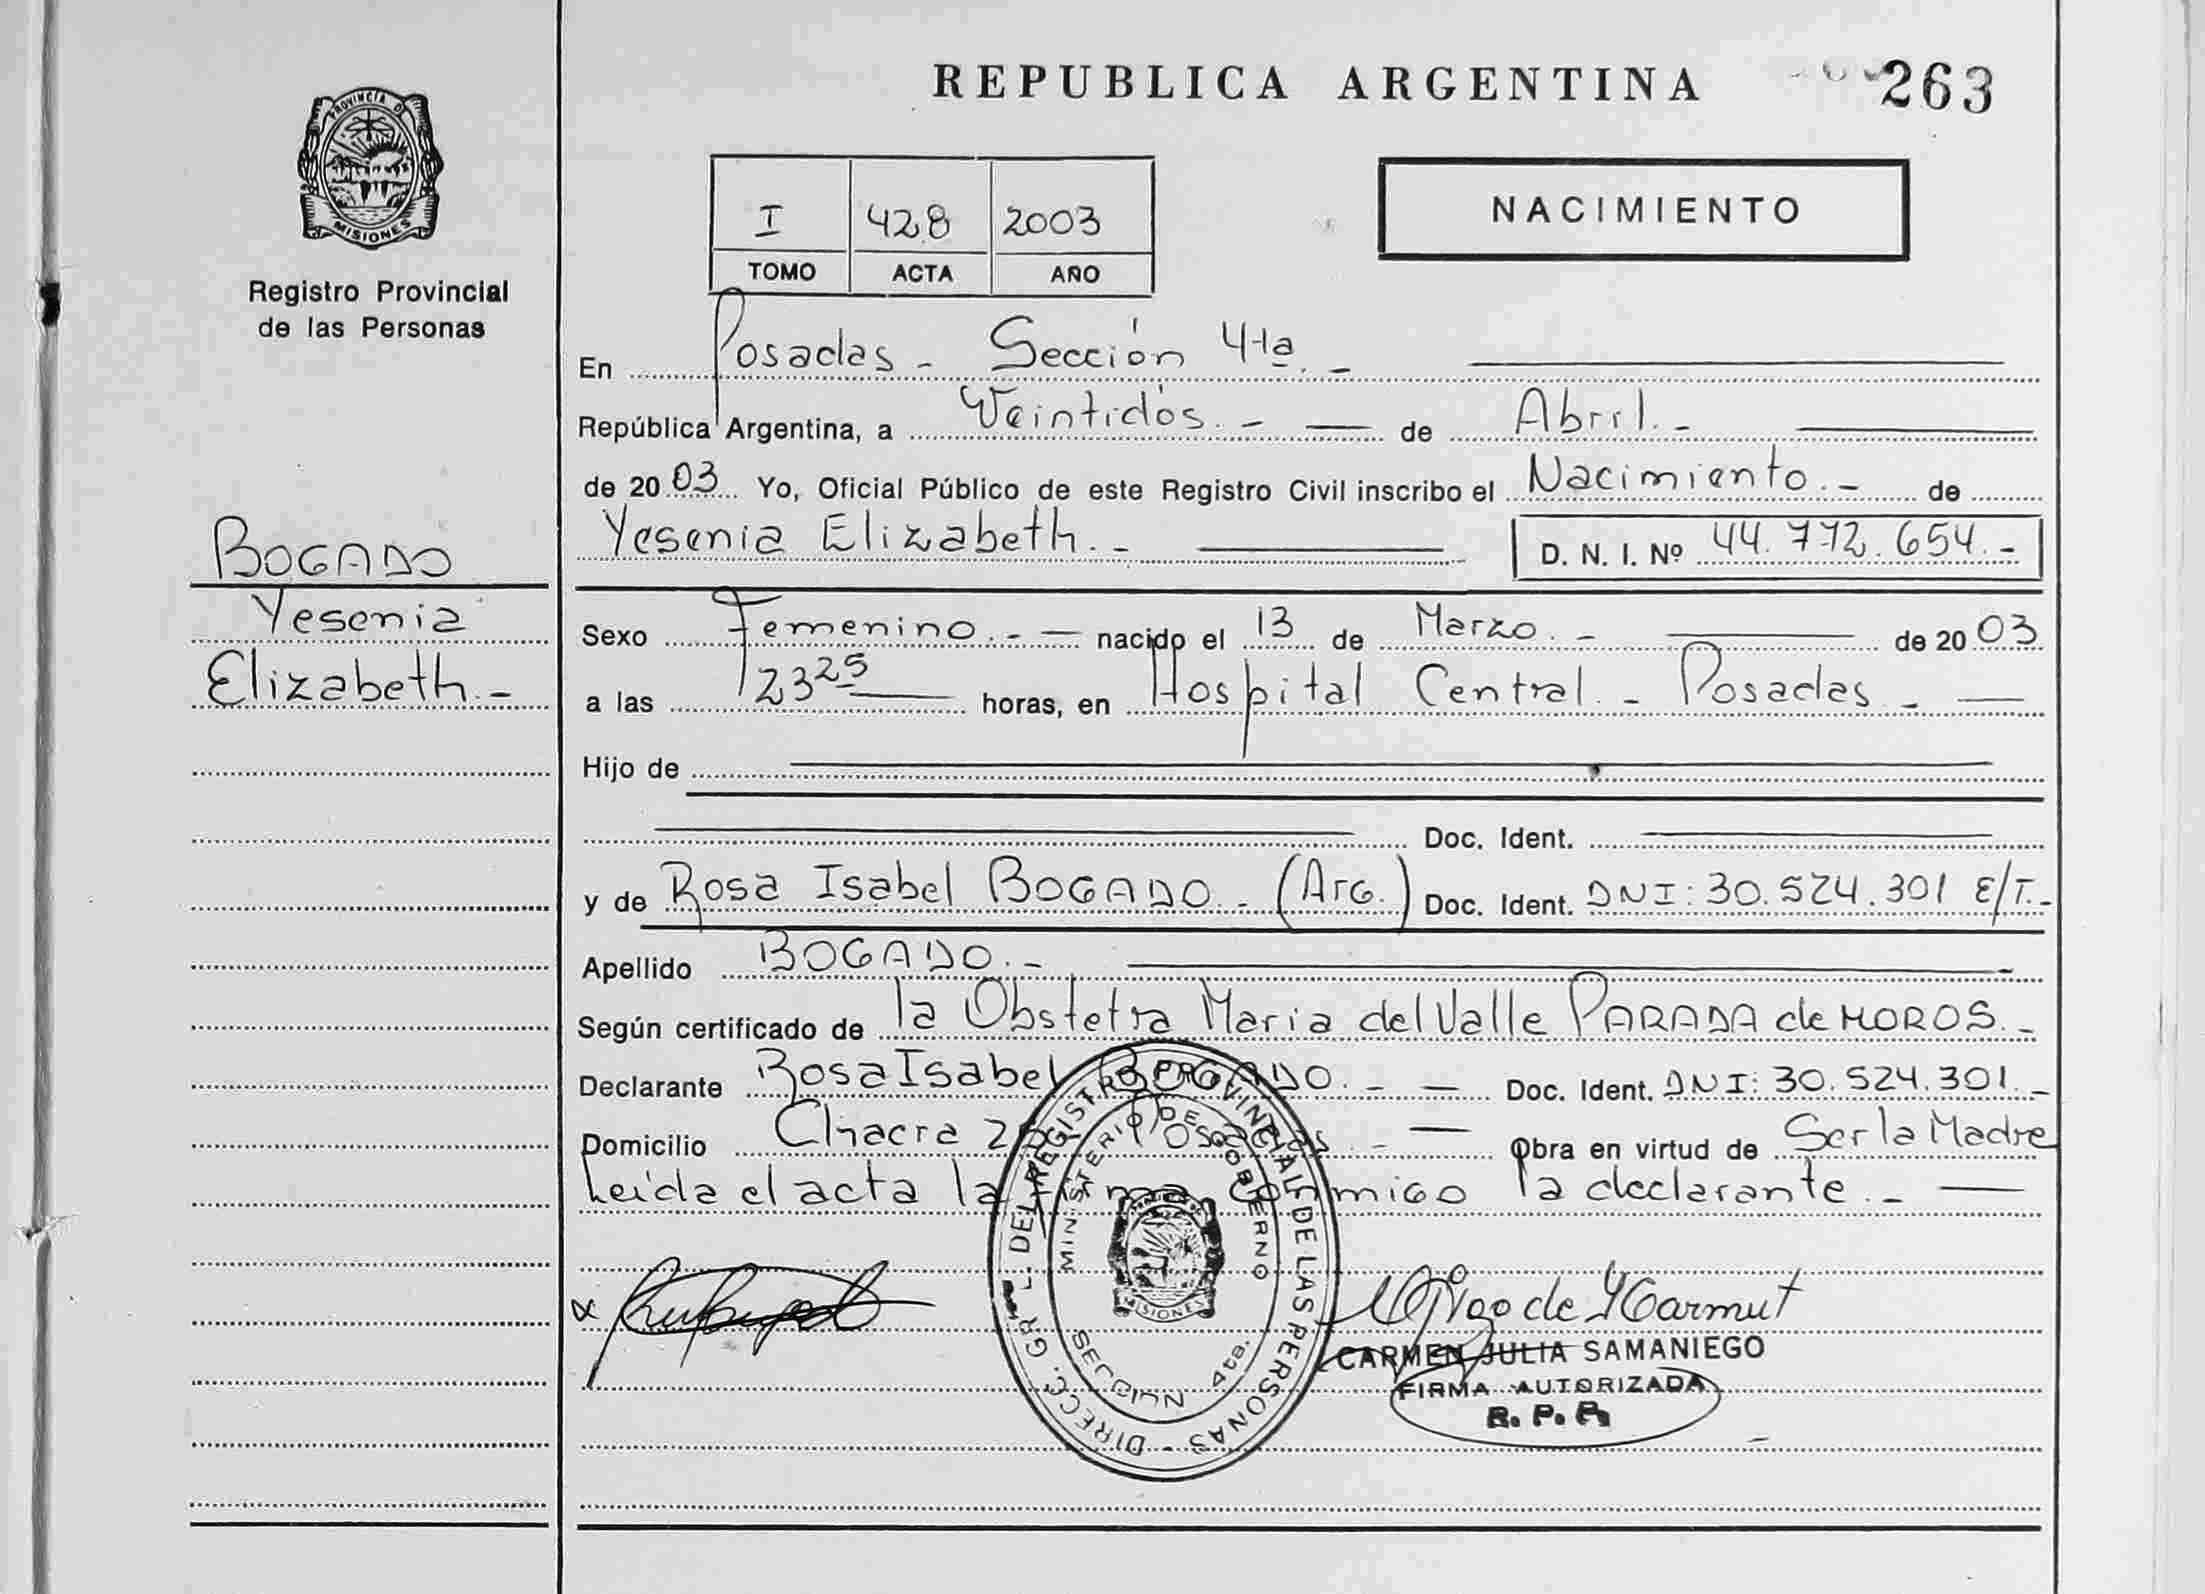 REPUBLICA ARGENTINA
263
PROVINCIA DE
MISIONES
Registro Provincial
de las Personas
I 428 2003
TOMO ACTA AÑO
NACIMIENTO
En Posadas - Sección 4ta. -
República Argentina, a Veintidós. - de Abril. -
de 2003 Yo, Oficial Público de este Registro Civil inscribo el Nacimiento. - de
Yesenia Elizabeth. - D. N. I. Nº 44.772.654. -
BOGADO
Yesenia
Elizabeth. -
Sexo Femenino. - nacido el 13 de Marzo. - de 2003
a las 23 25 horas, en Hospital Central. - Posadas -
Hijo de
Doc. Ident.
y de Rosa Isabel BOGADO. - (Arg.) Doc. Ident. DNI: 30.524.301 E/T. -
Apellido BOGADO. -
Según certificado de la Obstetra Maria del Valle PARADA de MOROS. -
Declarante Rosa Isabel BOGADO. - Doc. Ident. DNI: 30.524.301. -
Domicilio Chacra Posadas. - Obra en virtud de Ser la Madre
Leída el acta la firma conmigo la declarante. -
DIRECC. GRL. DEL REGISTRO PROVINCIAL DE LAS PERSONAS -
MINISTERIO DE GOBIERNO
MISIONES
SECCION 4ta.
CARMEN JULIA SAMANIEGO
FIRMA AUTORIZADA
R. P. P.